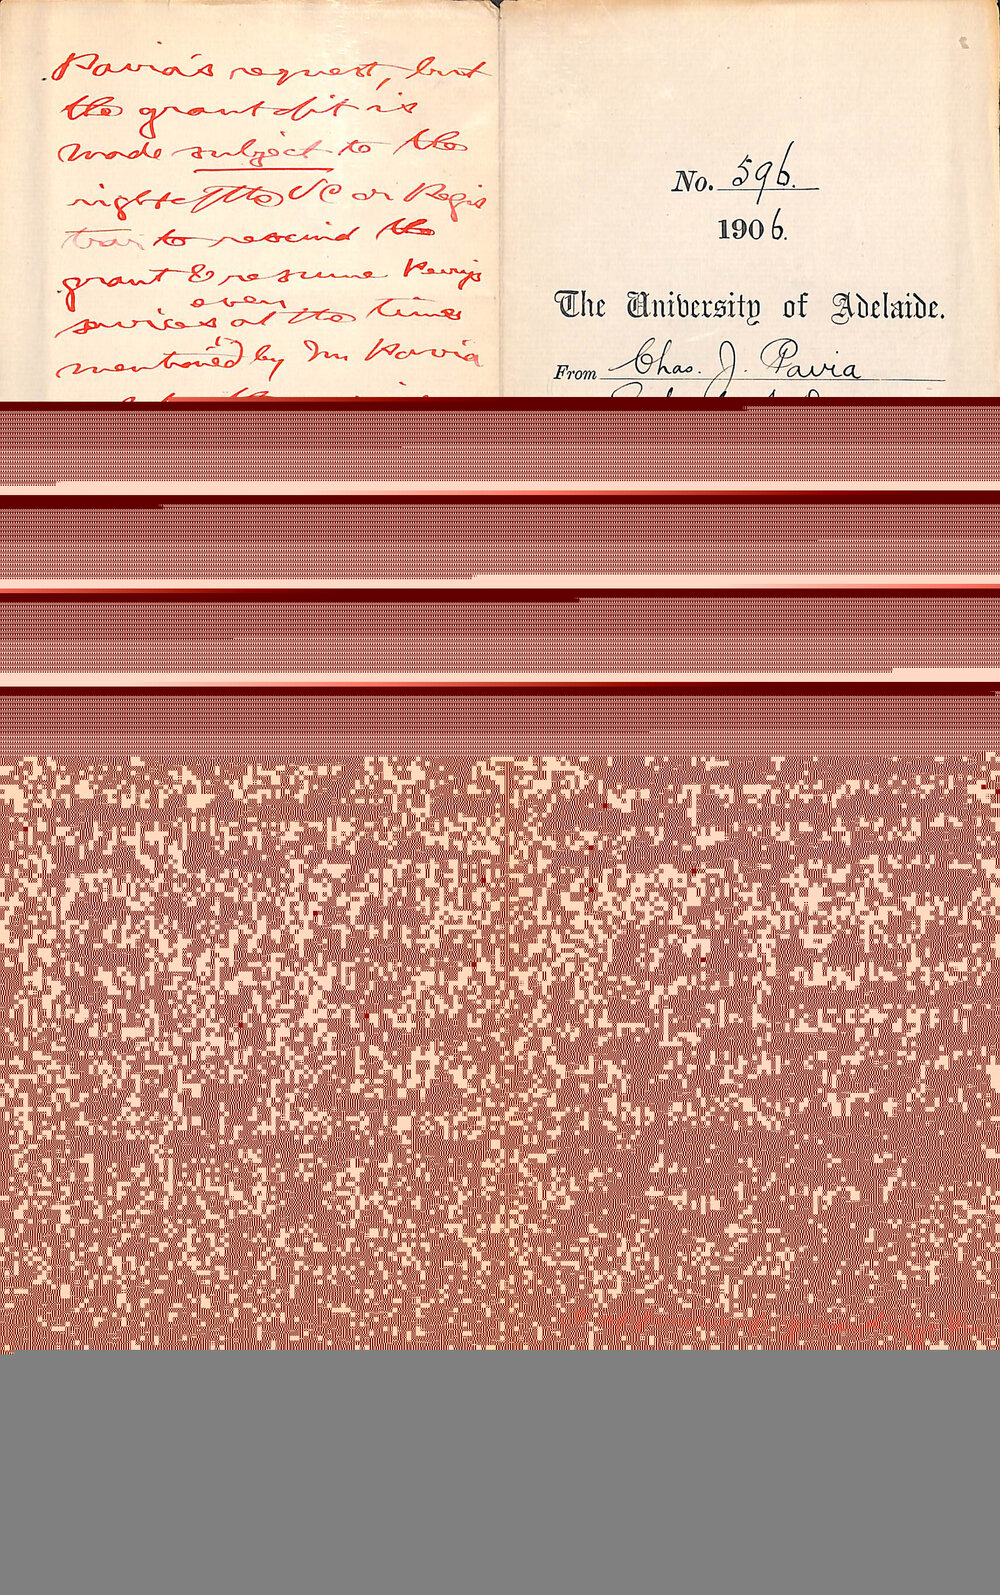 Pavia's request, but
the grant of it is
made subject to the
right of the VC or Regis
trar to rescind the
grant & resume Perry's
services even at the times
mentioned by Mr Pavia
No. 596.
1906.
The University of Adelaide.
From Chas. J. Pavia